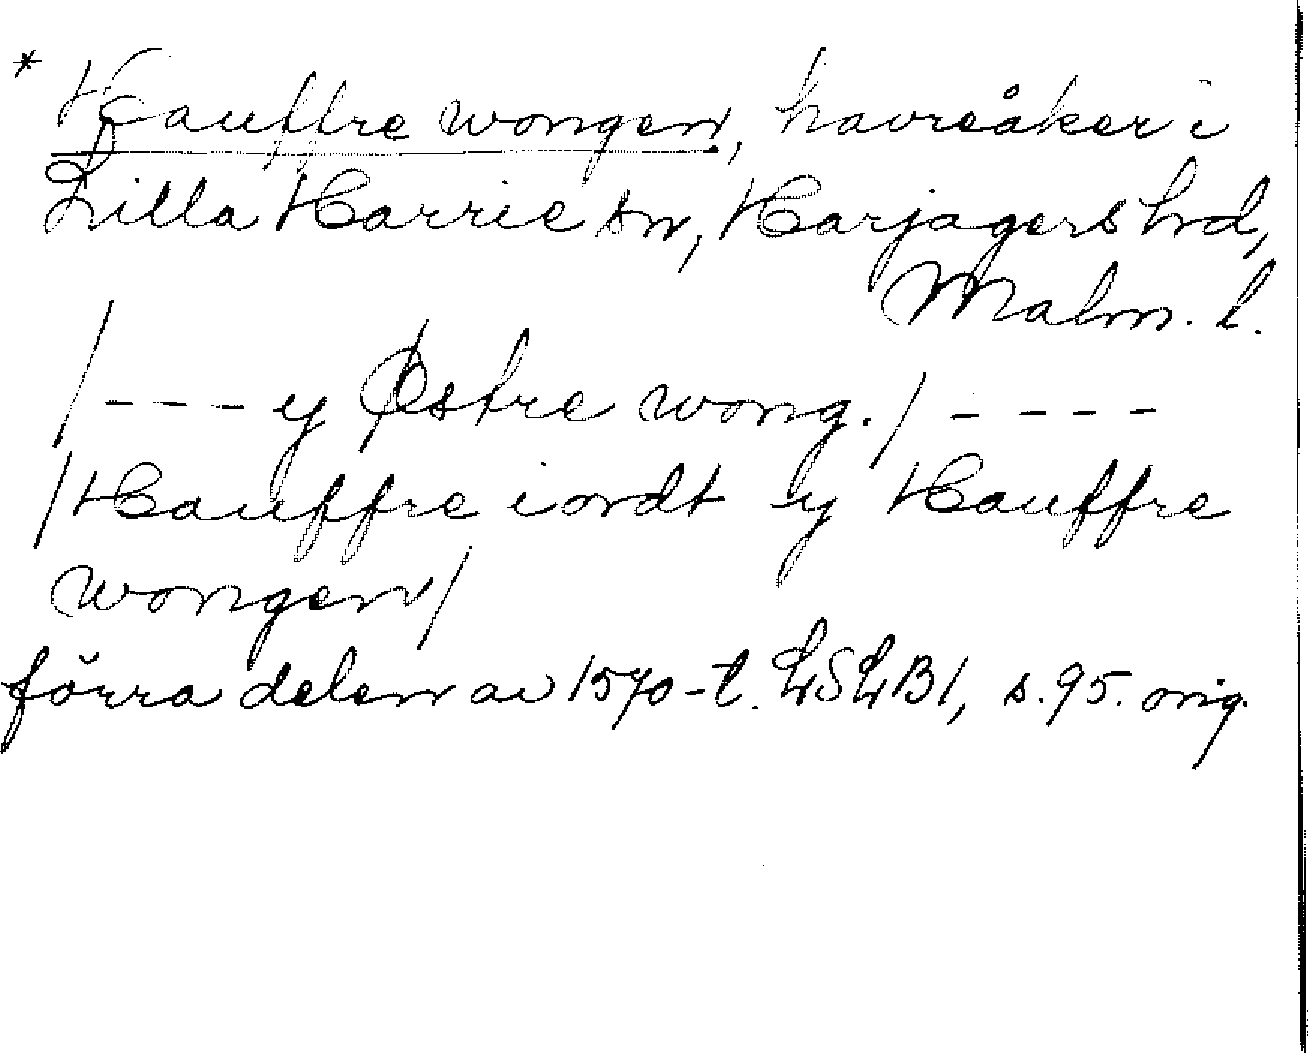 * Hauffre wongen, havreåker i
Lilla Harrie sn, Harjagers hd,
Malm. l.
/---y Østre wong./----
/Hauffre iordt y Hauffre
wongen/
förra delen av 1570-t. LSLB1, s.95. orig.